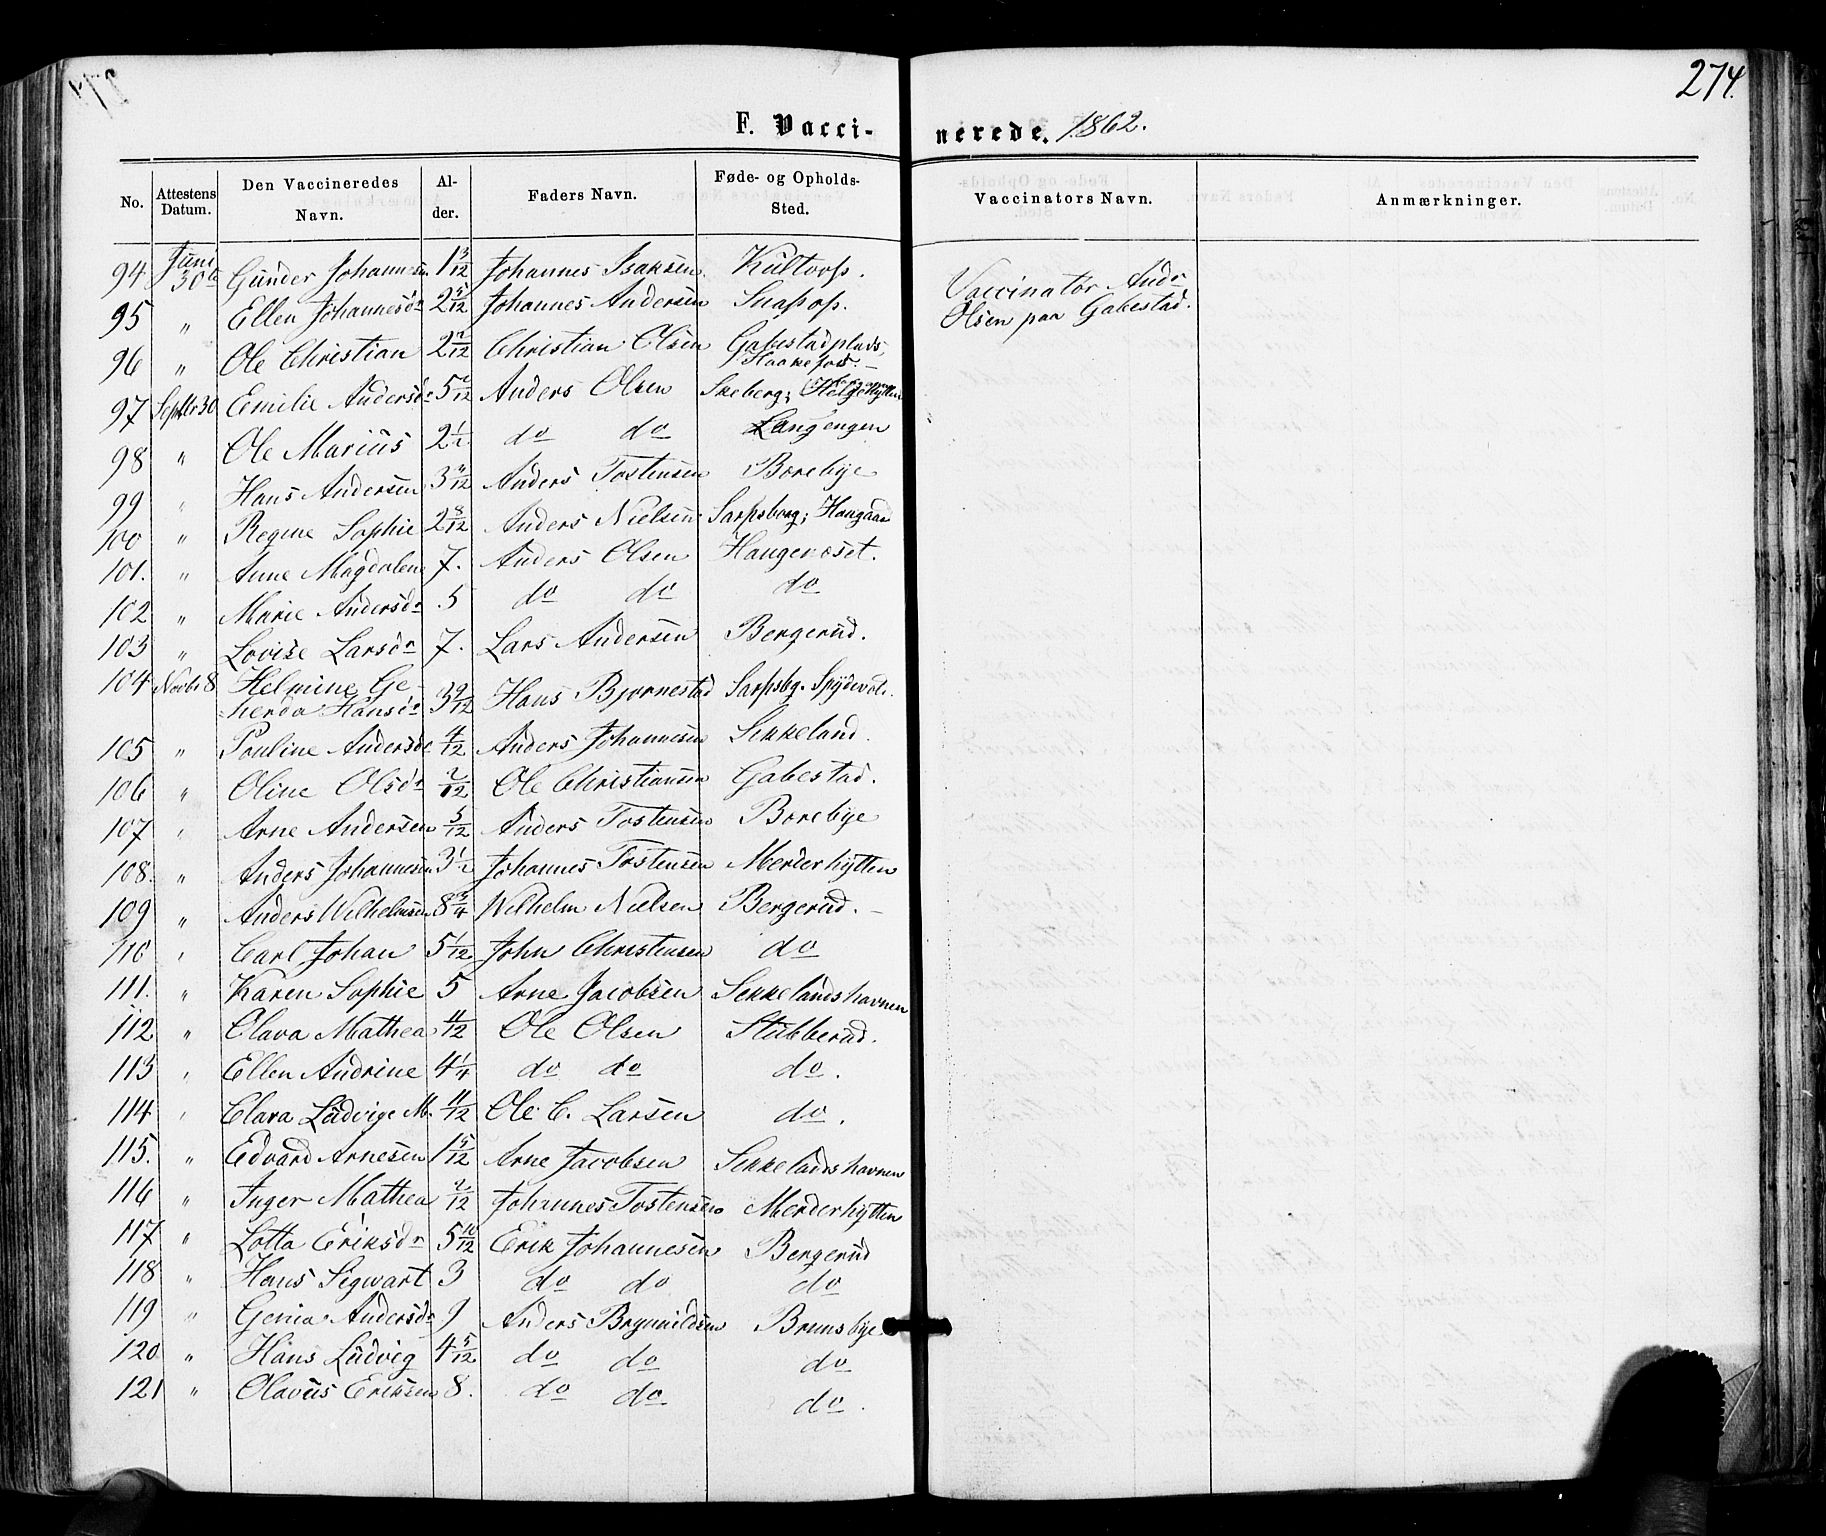 274.
F. Vaccinerede. 1862.
No. | Attestens Datum. | Den Vaccineredes Navn. | Alder. | Faders Navn. | Føde- og Opholds-Sted. | Vaccinators Navn. | Anmærkninger.
94 Juni 30te Gunder Johannesen 1 3/12 Johannes Isaksen Kultorp. Vaccinatør Andr
95 " Ellen Johannesdr 2 5/12 Johannes Andersen Snapop. Olsen paa Gabestad.
96 " Ole Christian 2 2/12 Christian Olsen Gabestadplads,
97 Septbr 30 Emilie Andersdr 5 6/12 Anders Olsen Skeberg;
98 " Ole Marius 2 1/2 do do Langengen
99 " Hans Andersen 3 11/12 Anders Tostensen Borebye
100 " Regine Sophie 2 8/12 Anders Nielsen Sarpsborg; Haugaard
101. " Anne Magdalene 7. Anders Olsen Haugerøset.
102 " Marie Andersdr 5 do do do
103 " Lovise Larsdr 7. Lars Andersen Bergerud.
104 Novbr 8 Helmine Ge-
herda Hansdr 3 9/12 Hans Bjørnestad Sarpsbg. Spydevold.
105 " Pauline Andersdr 4/12 Anders Johannesen Sikkeland.
106 " Oline Olsdr 2/12 Ole Christiansen Gabestad.
107 " Arne Andersen 5/12 Anders Tostensen Borebye
108. " Anders Johannesen 3 1/2 Johannes Tostensen Merderhytten
109 " Anders Wilhelmsen 8 3/4 Wilhelm Nielsen Bergerud. –
110 " Carl Johan 5 1/12 John Christensen do
111. " Karen Sophie 5 Arne Jacobsen Sikkelandshavnen
112 " Olava Mathea 11/12 Ole Olsen Stubberud.
113 " Ellen Andrine 4 1/4 do do do.
114 " Clara Ludvige M. 11/12 Ole C. Larsen do.
115. " Edvard Arnesen 1 5/12 Arne Jacobsen Sikkelandshavnen
116 " Inger Mathea 2/12 Johannes Tostensen Merderhytten
117 " Lotta Eriksdr 5 10/12 Erik Johannesen Bergerud
118 " Hans Sigwart 3 do do do
119 " Genia Andersdr 9 Anders Brynnildsen Brunsbye
120 " Hans Ludvig 4 5/12 do do do
121 " Olavus Eriksen 8. do do do.